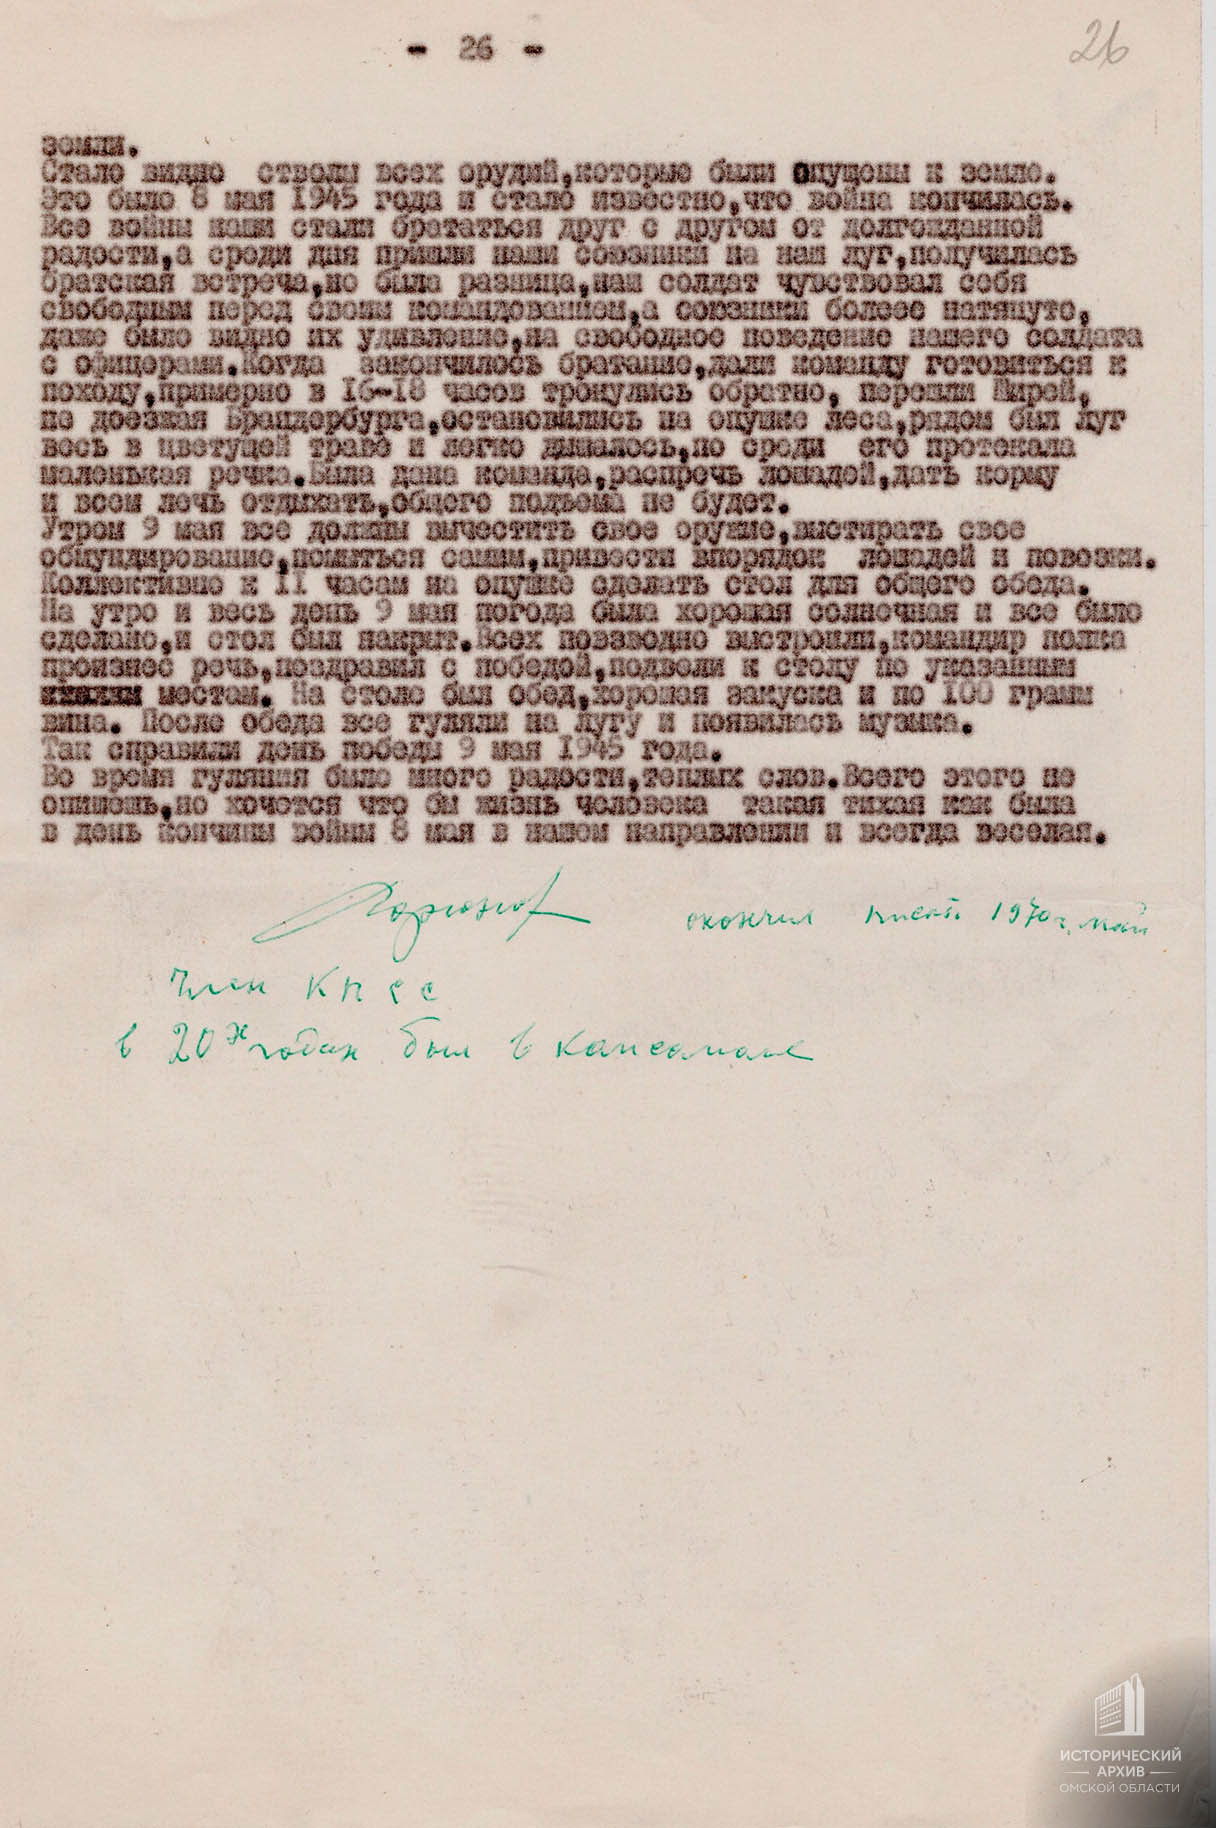 - 26 -
26
земли.
Стало видно стволы всех орудий,которые были опущены к земле.
Это было 8 мая 1945 года и стало известно,что война кончилась.
Все войны наши стали брататься друг с другом от долгожданной
радости,а среди дня пришли наши союзники на наш луг,получилась
братская встреча,но была разница,наш солдат чувствовал себя
свободным перед своим командованием,а союзники более натянуто,
даже было видно их удивление,на свободное поведение нашего солдата
с офицерами.Когда закончилось братание,дали команду готовиться к
походу,примерно в 16-18 часов тронулись обратно, перешли Шпрей,
не доезжая Брандербурга,остановились на опушке леса,рядом был луг
весь в цветущей траве и легко дышалось,по среди его протекала
маленькая речка.Была дана команда,распречь лошадей,дать корму
и всем лечь отдыхать,общего подъема не будет.
Утром 9 мая все должны вычестить свое оружие,выстирать свое
обмундирование,помыться самим,привести впорядок лошадей и повозки.
Коллективно к II часам на опушке сделать стол для общего обеда.
На утро и весь день 9 мая погода была хорошая солнечная и все было
сделано,и стол был накрыт.Всех повзводно выстроили,командир полка
произнес речь,поздравил с победой,подвели к столу по указанным
местам. На столе был обед,хорошая закуска и по 100 грамм
вина. После обеда все гуляли на лугу и появилась музыка.
Так справили день победы 9 мая 1945 года.
Во время гуляния было много радости,теплых слов.Всего этого не
опишешь,но хочется что бы жизнь человека такая тихая как была
в день кончины войны 8 мая в нашем направлении и всегда веселая.
окончил писать 1970 г. май
Член КПСС
в 20х годах был в комсомоле
ИСТОРИЧЕСКИЙ
АРХИВ
ОМСКОЙ ОБЛАСТИ